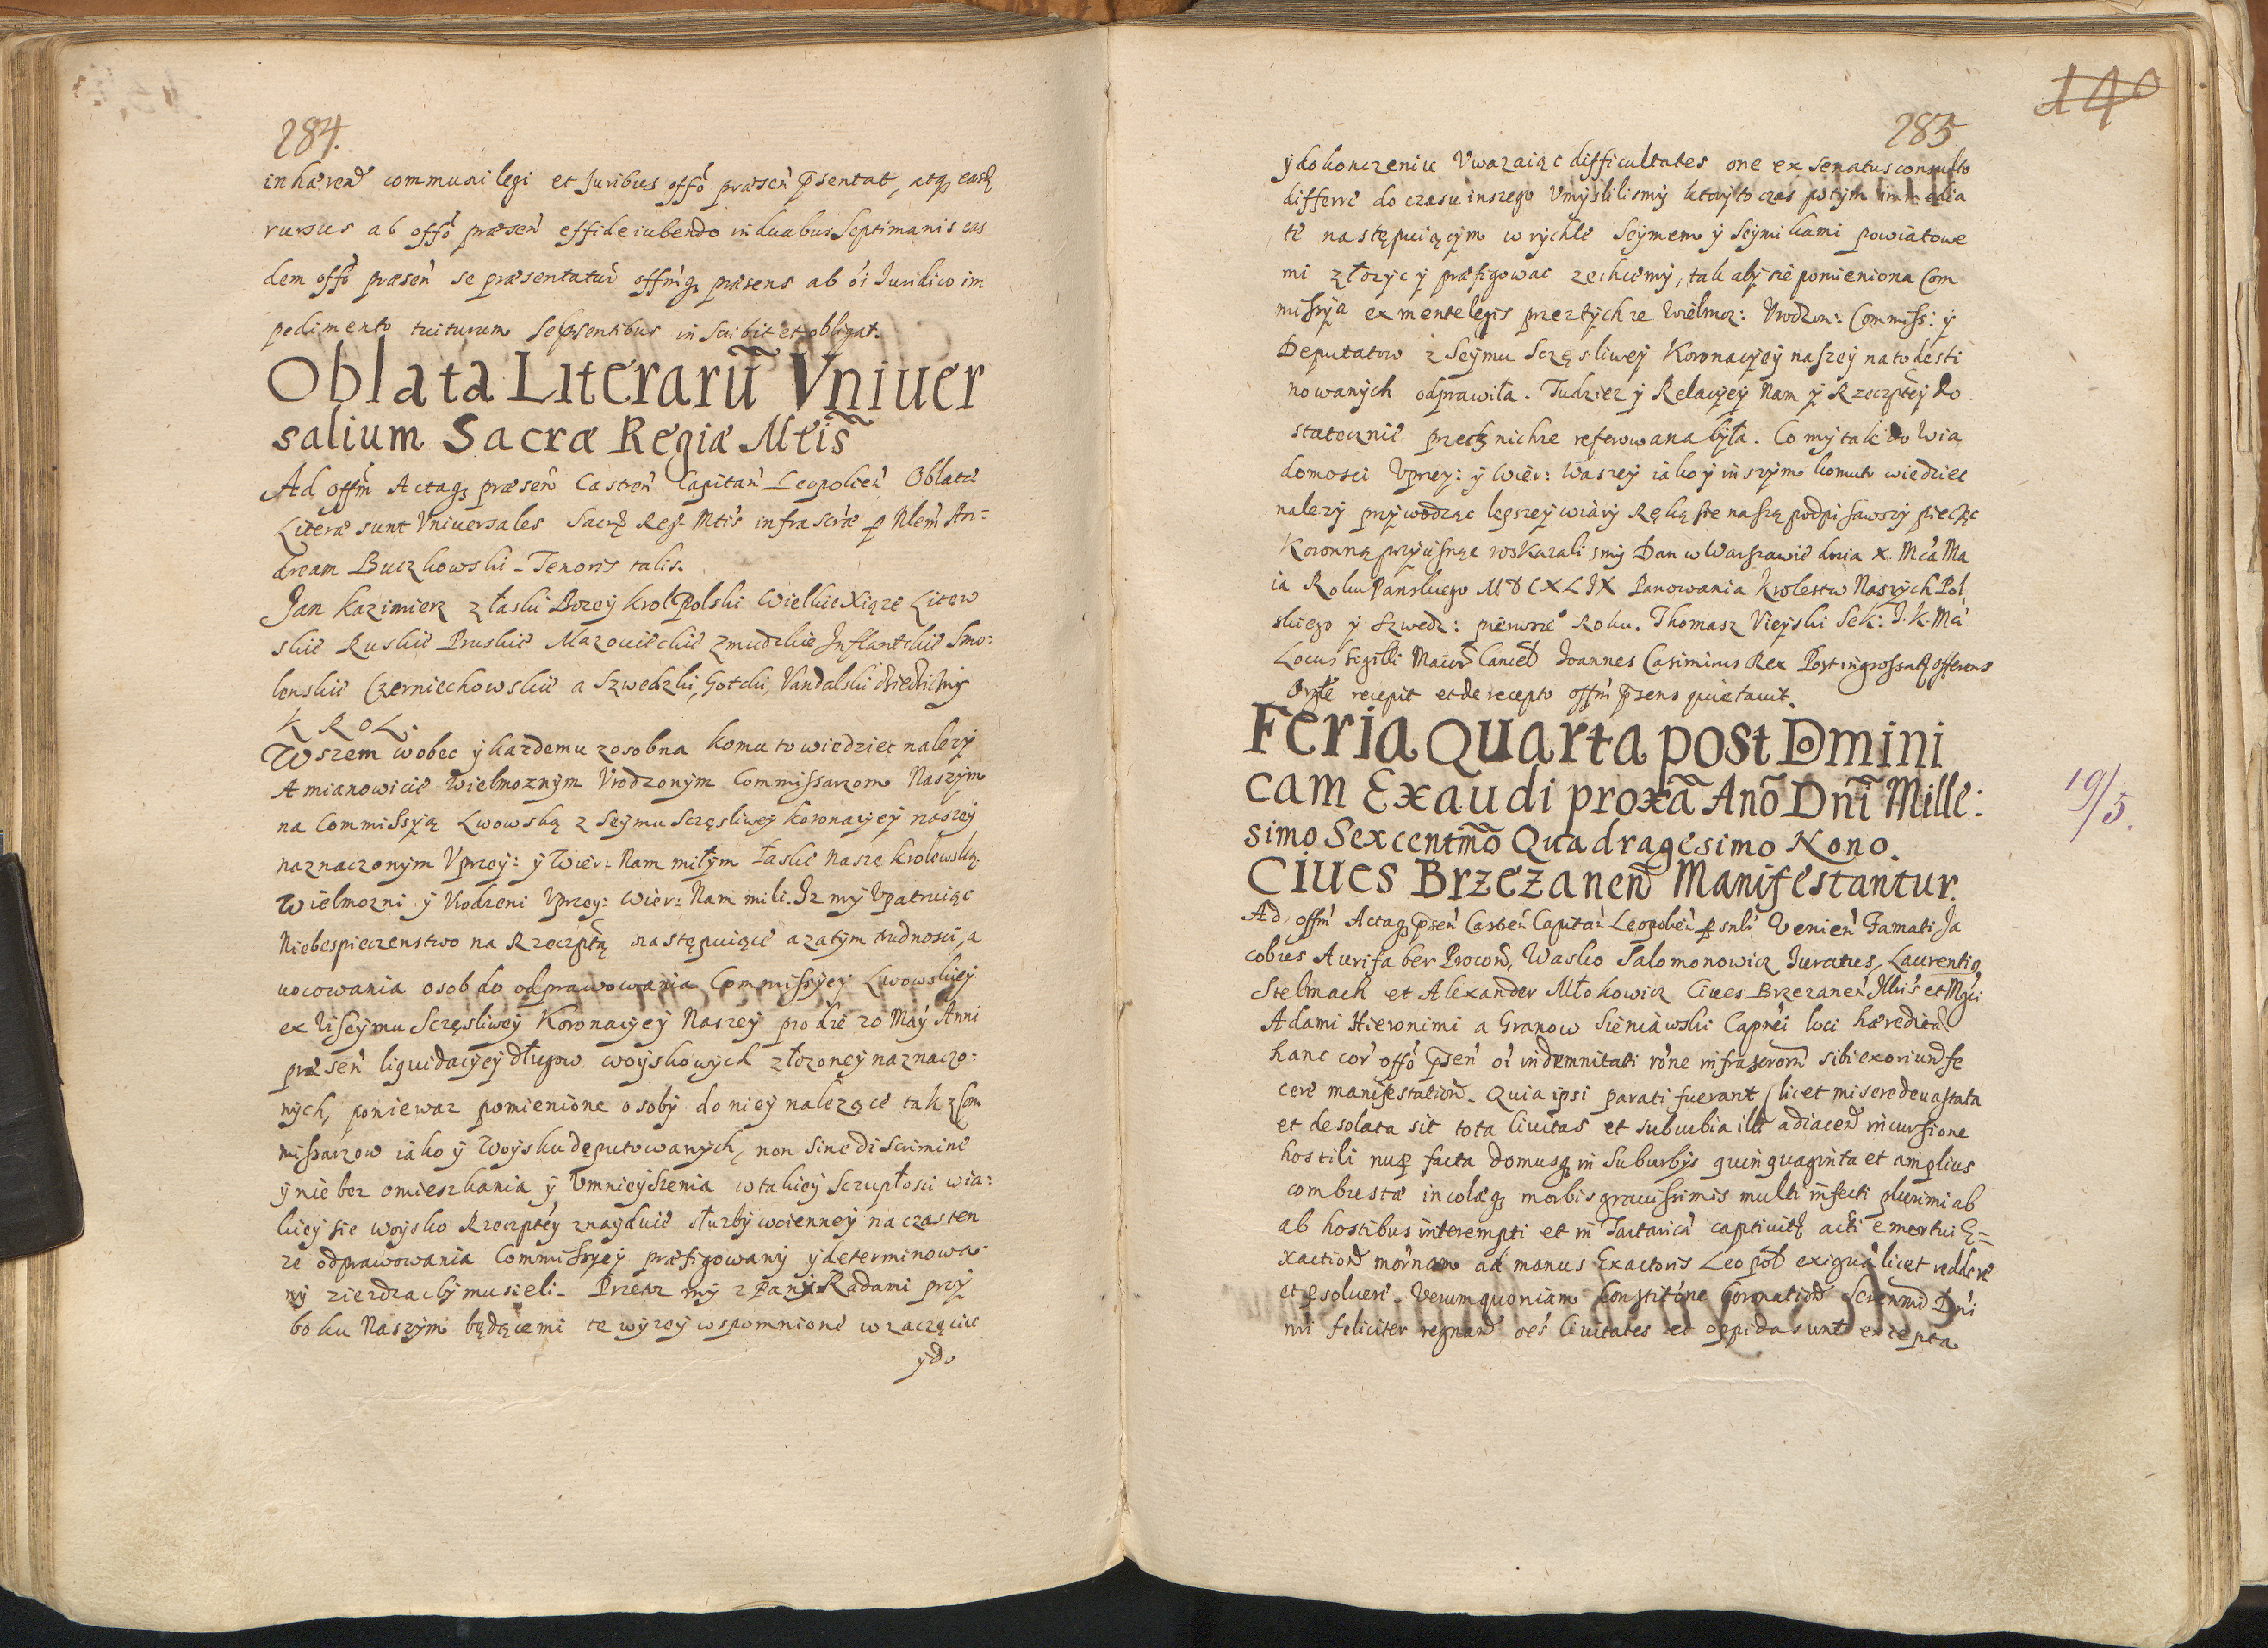 284.
inhærend communi legi et Juribus offo præsen p̄sentat, atq3 easd
rursus ab offo præsen effideiubendo in duabus Septimanis eas
dem offo præsen se præsentatur offmq3 præsens ab oi Juridico im
pedimento tuiturum se p̄sentibus inscribit et obligat.
Oblata Literarū Vniuer
salium Sacræ Regiæ Mtis
Ad offm Actaq3 præsen Castren Capitan Leopolien Oblatæ
Literæ sunt Vniuersales Sacræ Reg: Mtis infrascræ p Nlem An=
dream Buczkowski - Tenoris talis.
Jan Kazimierz z łaski Bozey Krol Polski Wielkie Xiąze Litew
skie Ruskie Pruskie Mazowieckie Zmudzkie Inflantskie Smo:
lenskie Czerniechowskie a Szwedzki, Gotski, Vandalski dziedziczny
KROL.
Wszem wobec ÿ kazdemu zosobna komu to wiedziec nalezÿ
A mianowicie Wielmoznÿm Vrodzonÿm Commissarzom Naszÿm
na Commissÿą Lwowską z Seÿmu Sczęsliweÿ koronacÿeÿ naszeÿ
naznaczonÿm Vprzey: ÿ Wier: Nam miłÿm łaskę nasze krolewską.
Wielmozni ÿ Vrodzeni Vprzey: Wier: Nam mili. Iz mÿ Vpatruiąc
Niebespieczenstwo na Rzeczptą następuiące a zatÿm trudnosci, a
uocowania osob do odprawowania Commissÿeÿ Lwowskieÿ
ex vi Seÿmu Sczęsliweÿ Koronacÿeÿ Naszeÿ pro die 20 Maÿ Anni
præsen liquidacÿeÿ długow woÿskowÿch złozoneÿ naznaczo:
nÿch, poniewaz pomienione osobÿ do nieÿ nalezące tak z Com
missarzow iako ÿ Woÿsku deputowanÿch, non sine discrimine
ÿ nie bez omieszkania ÿ Vmnieÿszenia w takieÿ Sczupłosci w ia:
kieÿ sie woÿsko Rzeczpteÿ znaÿduie słuzbÿ woienneÿ na czas ten
ze odprawowania Commissÿeÿ præfigowanÿ ÿ determinowa:
nÿ ziezdzac bÿ musieli. Przetz mÿ z Panÿ Radami przÿ
boku Naszÿm będącemi te wÿzeÿ wspomnione w zaczęciu
ÿ do
140
285
ÿ dokonczeniu Vwazaiąc difficultates one ex Senatusconsulto
differre do czasu inszego Vmÿslilismÿ ktorÿ to czas potÿm immedia
te następuiącÿm w rÿchle Seÿmem ÿ Seÿmikami powiatowe
mi złozÿc ÿ præfigowac zechcemÿ, tak abÿ sie pomieniona Com
missÿa ex mente legis przez tÿchze Wielmoz: Vrodzon: Commiss: ÿ
Deputatow z Seÿmu Sczęsliweÿ Koronacÿeÿ naszeÿ na to desti
nowanÿch odprawiła. Tudziez ÿ Relacÿeÿ Nam ÿ Rzeczpteÿ do
statecznie przez nichze referowana bÿła. Co mÿ tak do wia
domosci Vprzey: ÿ Wier: Waszeÿ iako ÿ inszÿm komuto wiedziec
nalezÿ przÿwodząc lepszeÿ wiarÿ Ręką sie naszą podpisawszÿ pieczęc
Koronną przÿcisnąc roskazalismÿ Dan w Warszawie dnia X. Mca Ma
ia Roku Panskiego MDCXLIX Panowania Krolestw Naszÿch Pol
skiego ÿ Szwedz: pierwsze Roku. Thomasz Vieyski Sek: J.K.Mci
Locus Sigilli Maioris Cancell Joannes Casimirus Rex Post ingrossat offerens
Orgle recepit et de recepto offm p̄sens quietauit.
Feria Quarta post Domini
cam Exaudi proxā Anō Dnī Mille:
simo Sexcentmō Quadragesimo Nono.
19/5.
Ciues Brzezanen Manifestantur.
Ad offm Actaq3 p̄sen Castren Capitan Leopolien psnlr Venien Famati Ja
cobus Aurifaber Procons, Wasko Salomonowicz Juratus, Laurentiq
Stelmach et Alexander Młokowicz Ciues Brzezanen Jllris et Mgci
Adami Hieronimi a Granow Sieniawski Caprei loci hæredita
hanc cor offo p̄sen oi indemnitati rone infrascrorm sibi exoriund fe
cere manifestation. Quia ipsi parati fuerant, licet misere deuastata
et desolata sit tota Ciuitas et suburbia illi adiacen incursione
hostili nup facta domusq3 in Suburbÿs quinquaginta et amplius
combustæ incolæq3 morbis grauissimis multi infecti plurimi ab
ab hostibus interempti et in Tartaricā captiuitē acti emortui E=
xaction mornam ad manus Exactoris Leopol exiguā licet reddere
et psoluere. Verum quoniam Constitone Coronation Serenmi Dni
nri feliciter regnan oes Ciuitates et oppida sunt excepta